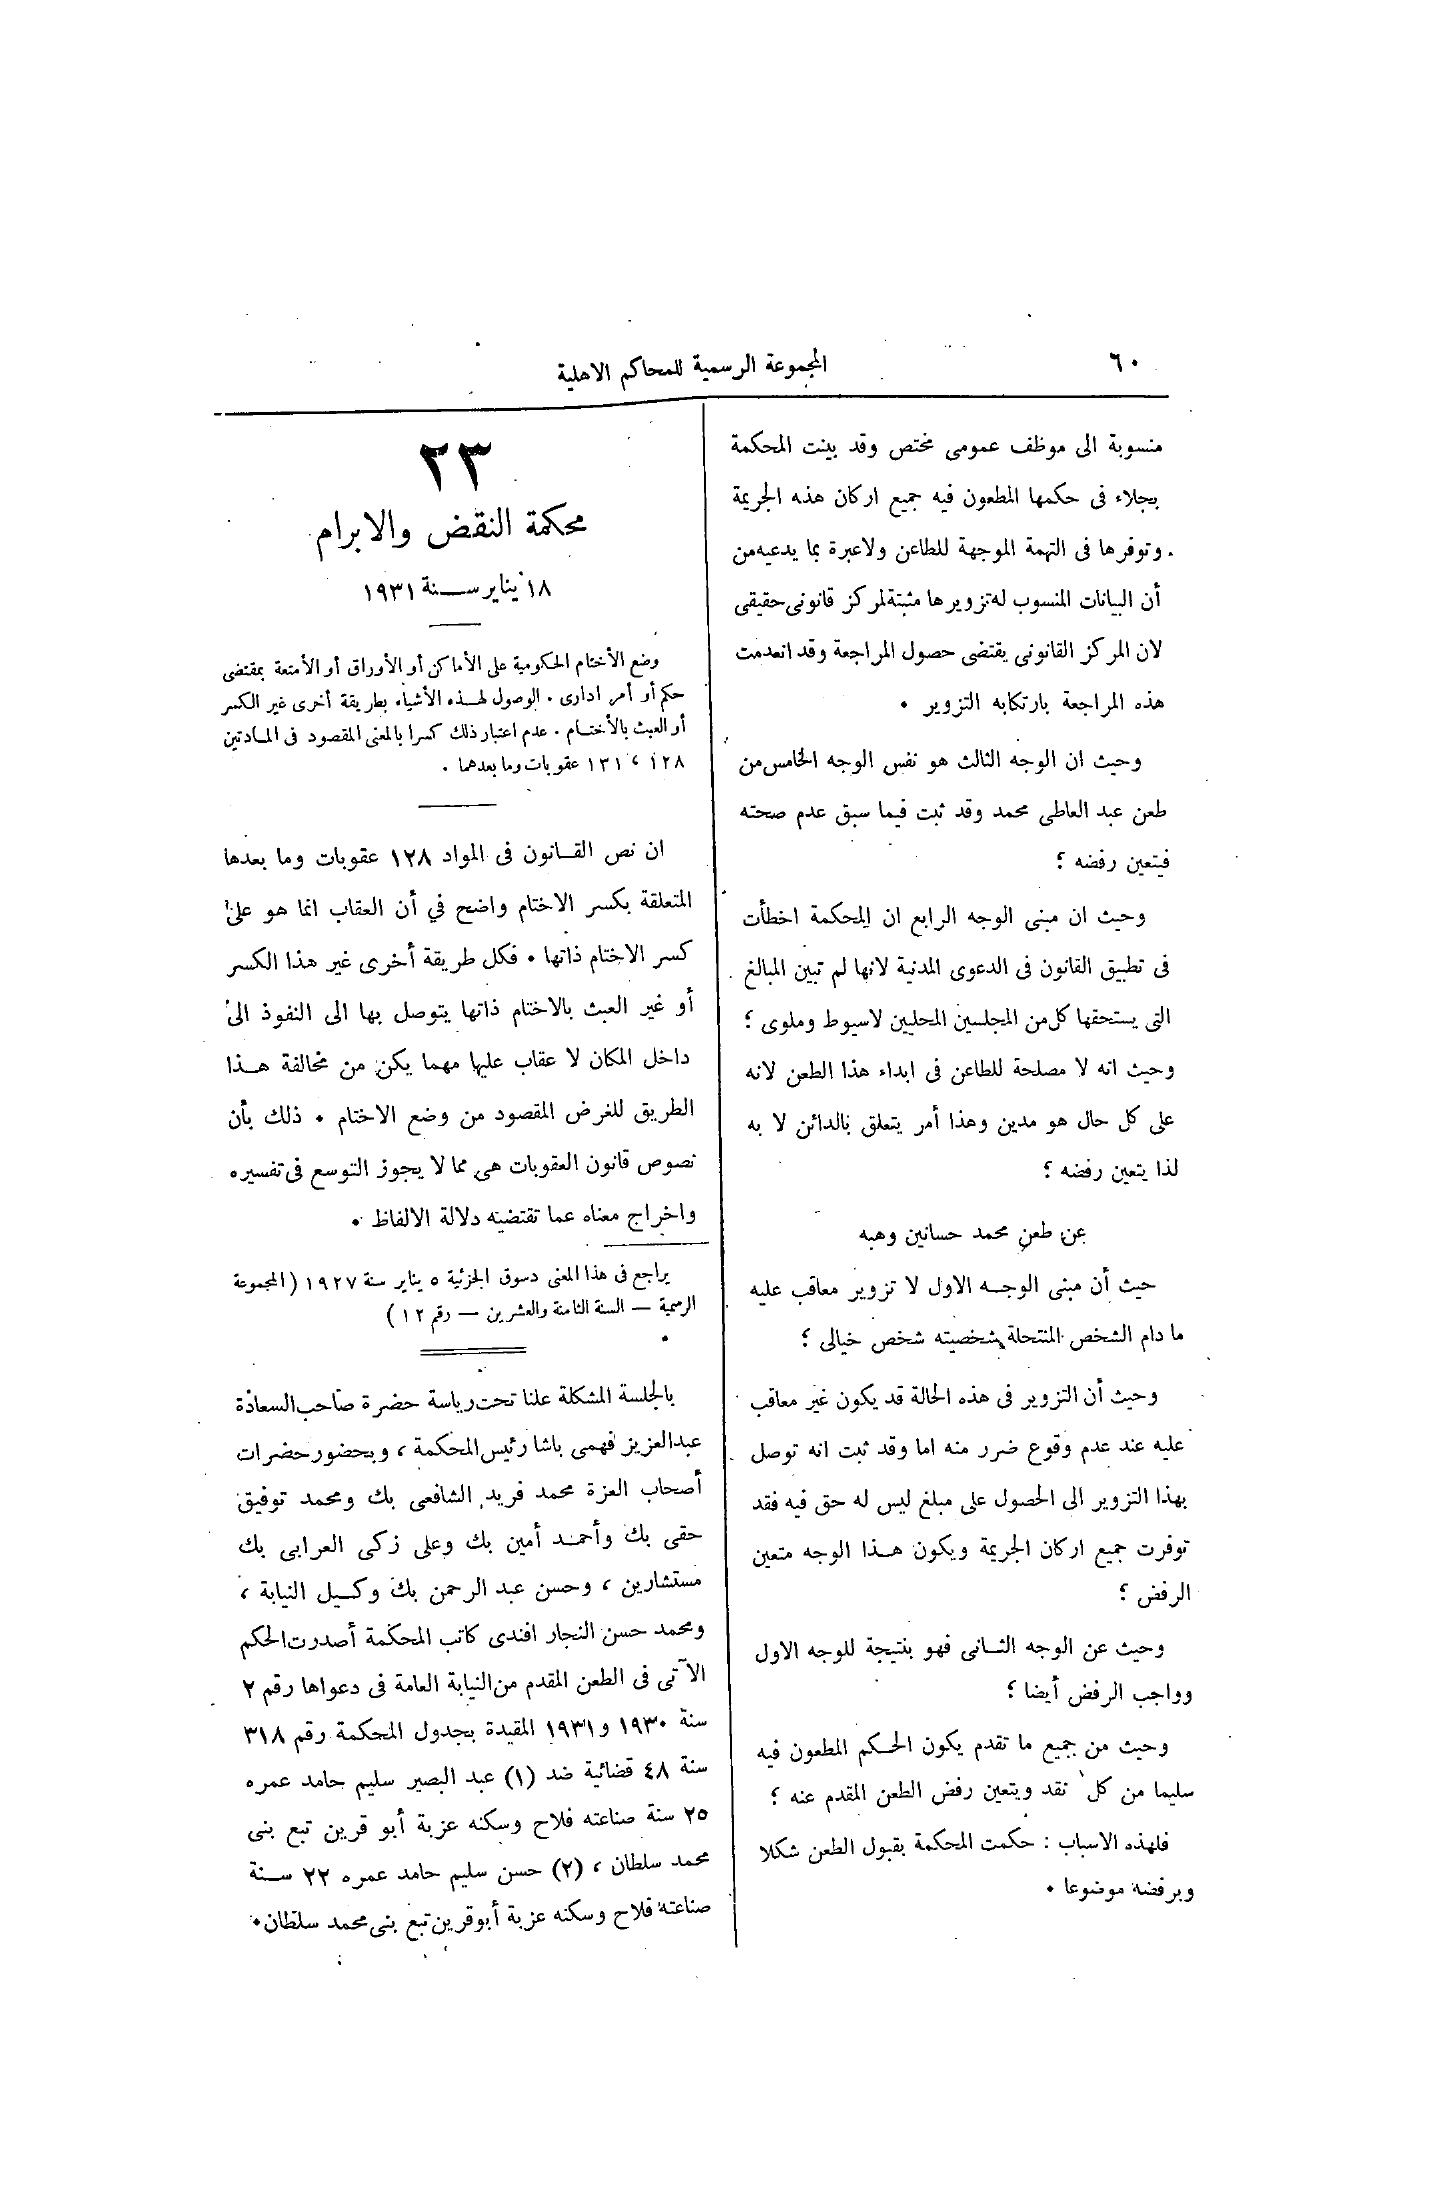 ٦٠
المجموعة الرسمية للمحاكم الاهلية
منسوبة الى موظف عمومى مختص وقد بينت المحكمة
بجلاء فى حكمها المطعون فيه جميع اركان هذه الجريمة
وتوفرها فى التهمة الموجهة للطاعن ولاعبرة بما يدعيه من
أن البيانات المنسوب له تزويرها مثبتة لمركز قانونى حقيقى
لان المركز القانونى يقتضى حصول المراجعة وقد انعدمت
هذه المراجعة بارتكابه التزوير .
وحيث ان الوجه الثالث هو نفس الوجه الخامس من
طعن عبد العاطى محمد وقد ثبت فيما سبق عدم صحته
فيتعين رفضه ؛
وحيث ان مبنى الوجه الرابع ان المحكمة اخطأت
فى تطبيق القانون فى الدعوى المدنية لانها لم تبين المبالغ
التى يستحقها كل من المجلسين المحليين لاسيوط وملوى ؛
وحيث انه لا مصلحة للطاعن فى ابداء هذا الطعن لانه
على كل حال هو مدين وهذا أمر يتعلق بالدائن لا به
لذا يتعين رفضه ؛
عن طعن محمد حسانين وهبه
حيث أن مبنى الوجه الاول لا تزوير معاقب عليه
ما دام الشخص المنتحلة شخصيته شخص خيالى ؛
وحيث أن التزوير فى هذه الحالة قد يكون غير معاقب
عليه عند عدم وقوع ضرر منه اما وقد ثبت انه توصل
بهذا التزوير الى الحصول على مبلغ ليس له حق فيه فقد
توفرت جميع اركان الجريمة ويكون هذا الوجه متعين
الرفض ؛
وحيث عن الوجه الثانى فهو بنتيجة للوجه الاول
وواجب الرفض أيضا ؛
وحيث من جميع ما تقدم يكون الحكم المطعون فيه
سليما من كل نقد ويتعين رفض الطعن المقدم عنه ؛
فلهذه الاسباب : حكمت المحكمة بقبول الطعن شكلا
وبرفضه موضوعا .
٢٣
محكمة النقض والابرام
١٨ يناير سنة ١٩٣١
وضع الأختام الحكومية على الأماكن أو الأوراق أو الأمتعة بمقتضى
حكم أو أمر ادارى . الوصول لهذه الأشياء بطريقة أخرى غير الكسر
أو العبث بالأختام . عدم اعتبار ذلك كسرا بالمعنى المقصود فى المادتين
١٢٨ ، ١٣١ عقوبات وما بعدهما .
ان نص القانون فى المواد ١٢٨ عقوبات وما بعدها
المتعلقة بكسر الاختام واضح في أن العقاب انما هو على
كسر الاختام ذاتها . فكل طريقة أخرى غير هذا الكسر
أو غير العبث بالاختام ذاتها يتوصل بها الى النفوذ الى
داخل المكان لا عقاب عليها مهما يكن من مخالفة هذا
الطريق للغرض المقصود من وضع الاختام . ذلك بأن
نصوص قانون العقوبات هى مما لا يجوز التوسع فى تفسيره
واخراج معناه عما تقتضيه دلالة الالفاظ .
يراجع فى هذا المعنى دسوق الجزئية ٥ يناير سنة ١٩٢٧ (المجموعة
الرسمية — السنة الثامنة والعشرين — رقم ١٢)
بالجلسة المشكلة علنا تحت رياسة حضرة صاحب السعادة
عبدالعزيز فهمى باشا رئيس المحكمة ، وبحضور حضرات
أصحاب العزة محمد فريد الشافعى بك ومحمد توفيق
حقى بك وأحمد أمين بك وعلى زكى العرابى بك
مستشارين ، وحسن عبد الرحمن بك وكيل النيابة ،
ومحمد حسن النجار افندى كاتب المحكمة أصدرت الحكم
الآتى فى الطعن المقدم من النيابة العامة فى دعواها رقم ٢
سنة ١٩٣٠ و١٩٣١ المقيدة بجدول المحكمة رقم ٣١٨
سنة ٤٨ قضائية ضد (١) عبد البصير سليم حامد عمره
٢٥ سنة صناعته فلاح وسكنه عزبة أبو قرين تبع بنى
محمد سلطان ، (٢) حسن سليم حامد عمره ٢٢ سنة
صناعته فلاح وسكنه عزبة أبو قرين تبع بنى محمد سلطان .